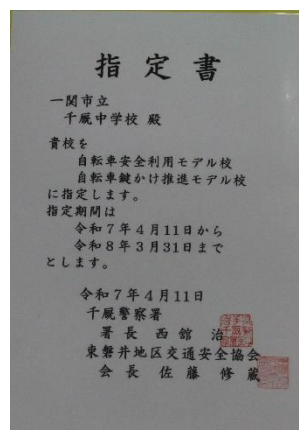 指定書
一関市立
千厩中学校 殿
貴校を
自転車安全利用モデル校
自転車鍵かけ推進モデル校
に指定します。
指定期間は
令和7年4月11日から
令和8年3月31日まで
とします。
令和7年4月11日
千厩警察署
署長 西舘 治
東磐井地区交通安全協会
会長 佐藤 修蔵